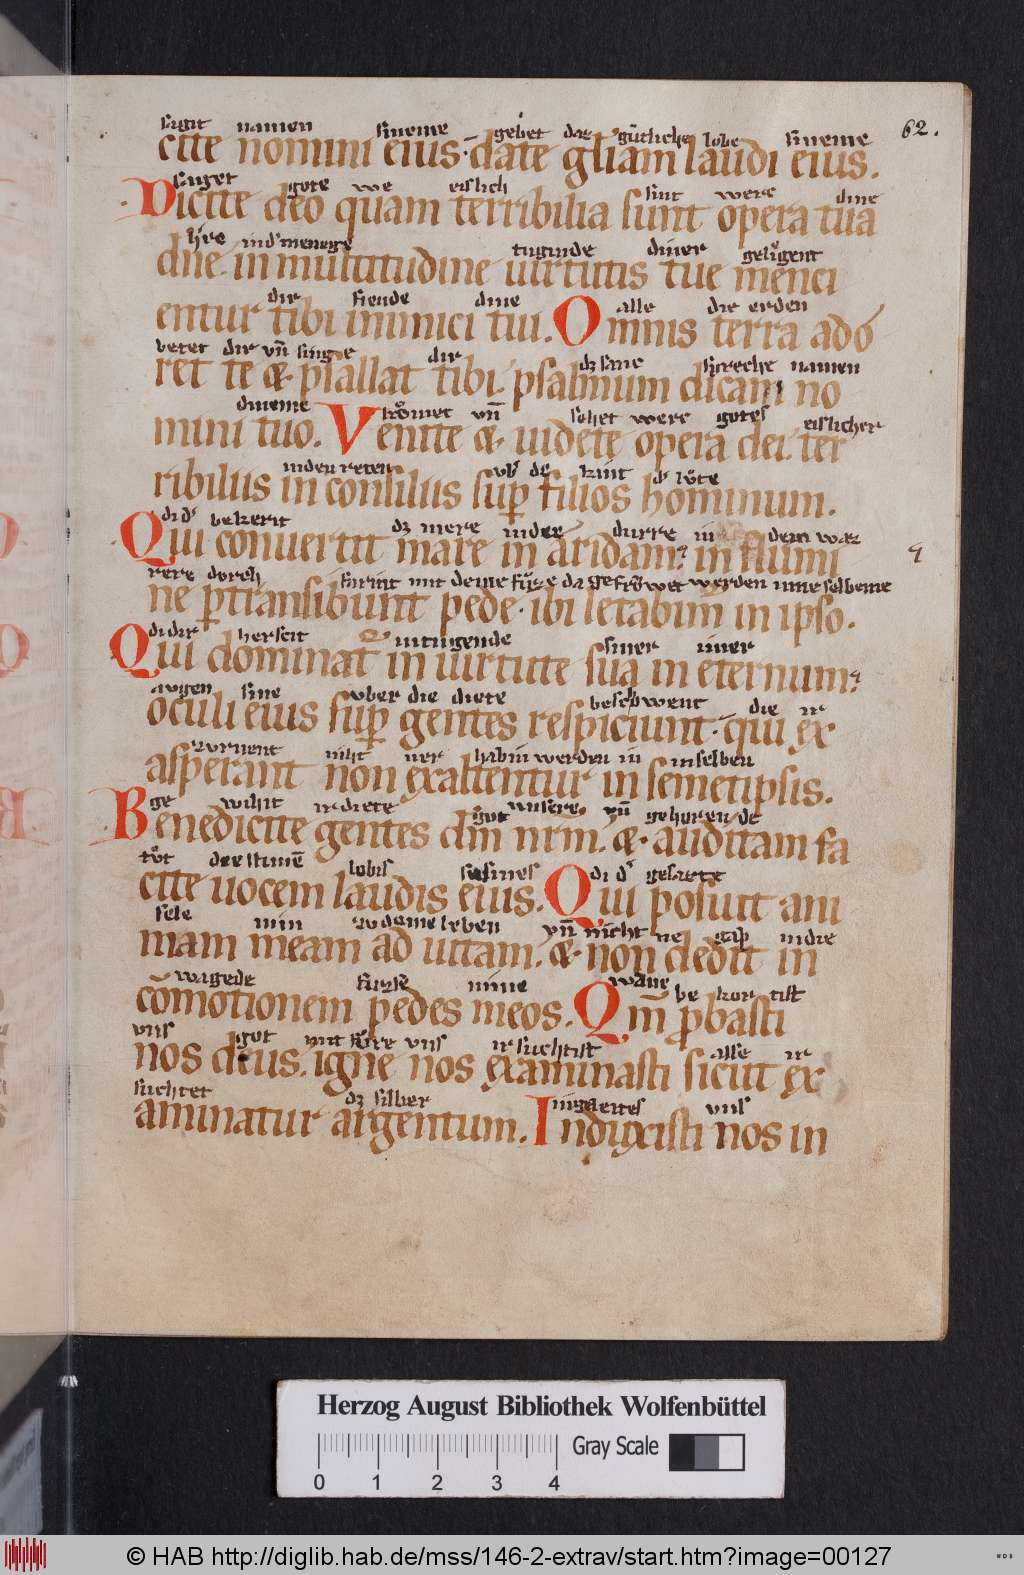 62.
sagit namen sineme gebet die gůtliche lobe sineme
cite nomini eius. date gl̄iam laudi eius.
saget gote we eislich sint werc dine
Dicite deo quam terribilia sunt opera tua
h're in d' menege tuginde diner geligent
dn̄e. in multitudine uirtutis tue menci
dir fiende dine alle die erden
entur tibi inimici tui. Omnis terra ado
betet dir vn̄ singe dir dz spreche namen
ret te & psallat tibi. psalmum dicam no
dineme kom̊et vn̄ sehet werc gotes eislicher
mini tuo. Venite & uidete opera dei. ter
in den reten vb' de kint d' lůte
ribilis in consiliis sup filios hominum.
di d' bekerit dz mere in durre in dem waz
Qui conuertit mare in aridam. in flumi
rere dorch farint mit deme fůze da gefrowet werden ime selbeme
ne ptransibunt pede. ibi letabim̄ in ipso.
di dir herscit in tugende siner imer
Qui dominat̄ in uirtute sua in eternum.
augen sine vber die diete beschowent die
oculi eius sup gentes respiciunt. qui ex
zurnent niht werden in in selben
asperant non exaltentur in semetipsis.
ge wihit ir diete got vnsere vn̄ gehoren de
Benedicite gentes dm̄ nr̄m. & auditam fa
tůt die stim̄e lobis sines di d' gesazte
cite uocem laudis eius. Qui posuit ani
sele min zo deme leben vn̄ nicht ne gap in die
mam meam ad uitam. & non dedit in
wagede fuze mine wane be kor tist
com̄otionem pedes meos. Qm̄ pbasti
vns got mit fůre vns ir suchtist alse ir
nos deus. igne nos examinasti sicut ex
suchtet dz silber in geleites vns
aminatur argentum. Induxisti nos in
Herzog August Bibliothek Wolfenbüttel
Gray Scale
0 1 2 3 4
© HAB http://diglib.hab.de/mss/146-2-extrav/start.htm?image=00127